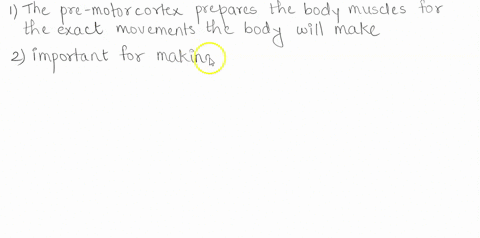 1) The pre-motor cortex prepares the body muscles for
the exact movements the body will make
2) important for making